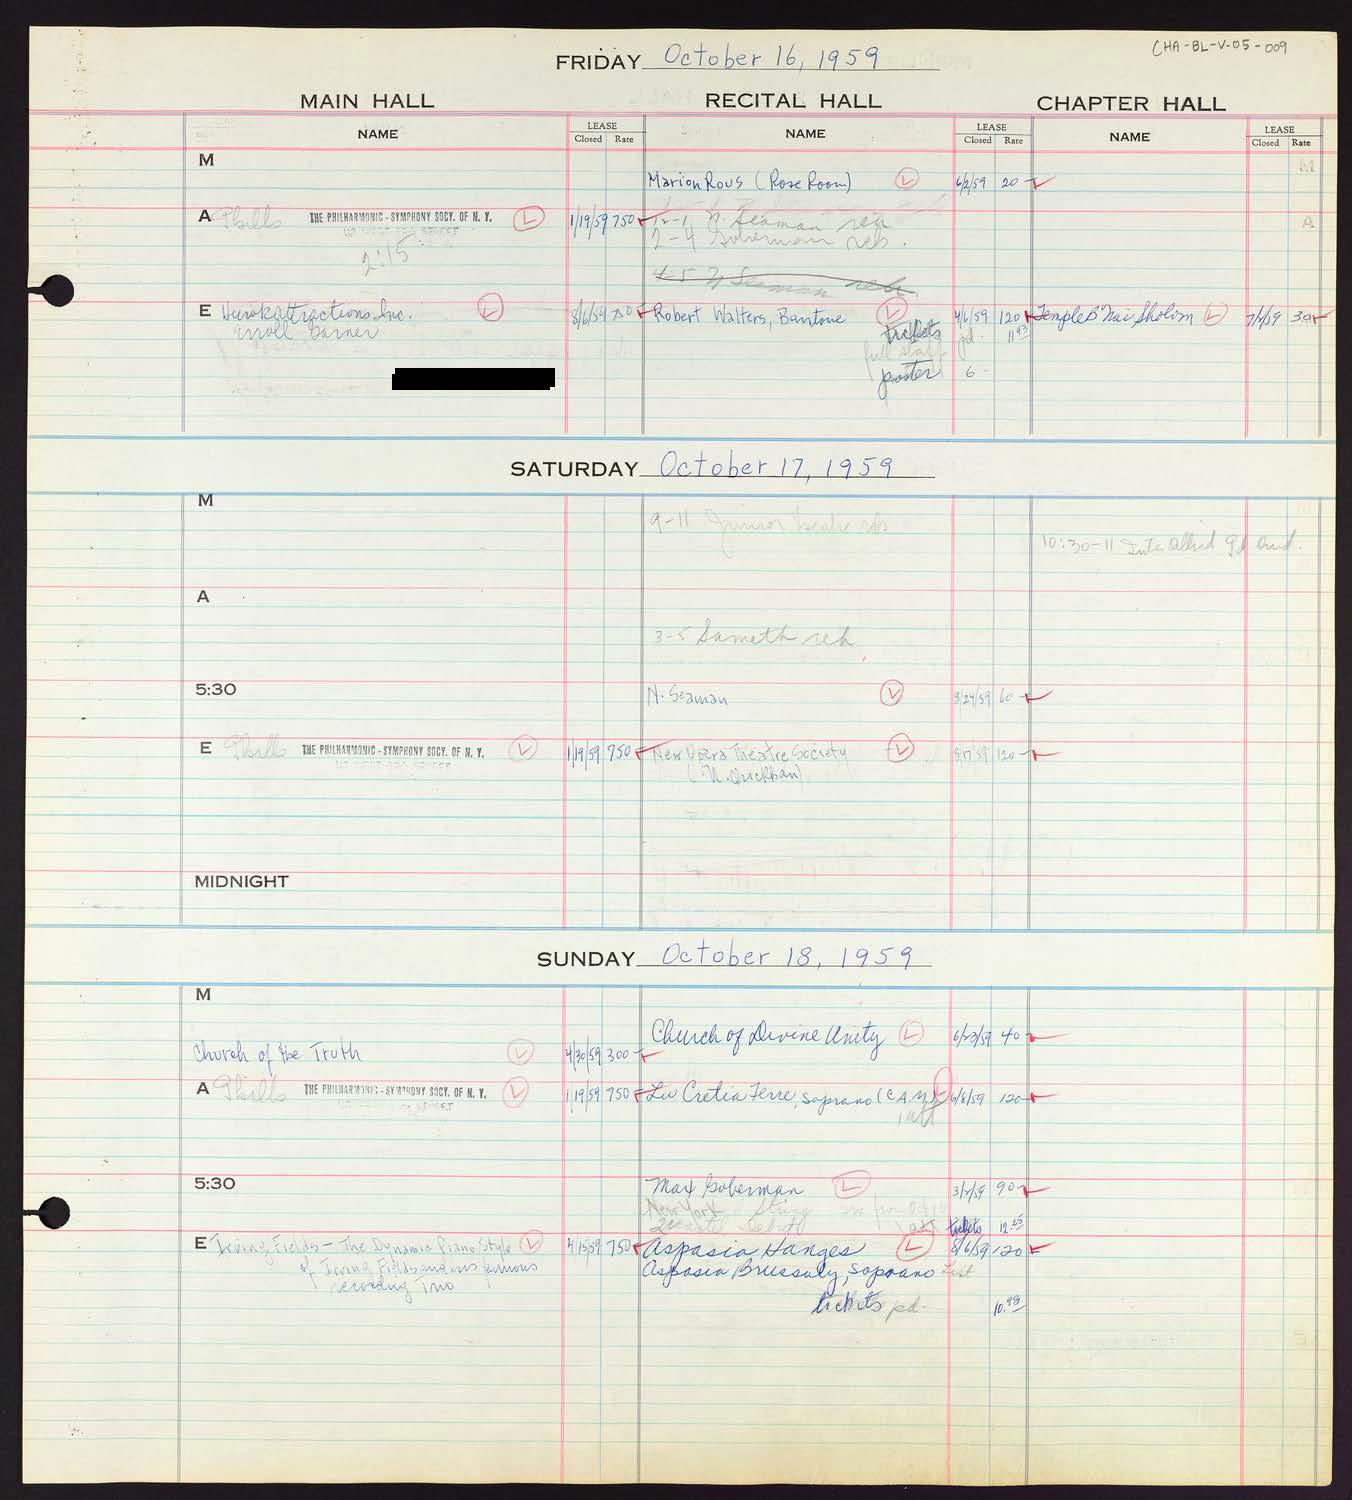 CHA-BL-V-05-009
FRIDAY October 16, 1959
MAIN HALL RECITAL HALL CHAPTER HALL
NAME LEASE Closed Rate NAME LEASE Closed Rate NAME LEASE Closed Rate
M
Marion Rous (Rose Room) L 6/2/59 20
A Philh THE PHILHARMONIC-SYMPHONY SOCY. OF N. Y. L 1/19/59 750 12-1 N. Seaman reh
2-4 Goberman reh.
2:15
4-5 N Seaman reh.
E Hurok attractions, Inc. L 8/6/59 750 Robert Walters, Baritone L 4/6/59 120 Temple B'Nai Sholom L 7/1/59 30
Erroll Garner tickets pd. 11
full staff
poster 6-
SATURDAY October 17, 1959
M
9-11 Junior reh
10:30-11 Inter Allied
A
3-5 Sameth reh
5:30
N. Seaman L 3/24/59 60
E Philh THE PHILHARMONIC-SYMPHONY SOCY. OF N. Y. L 1/19/59 750 New Opera Theatre Society L 8/17/59 120
MIDNIGHT
SUNDAY October 18, 1959
M
Church of Divine Unity L 6/23/59 40
Church of the Truth L 4/30/59 300
A Philh THE PHILHARMONIC-SYMPHONY SOCY. OF N. Y. L 1/19/59 750 Lu Cretia Ferre, Soprano (C.A.M.) L 6/8/59 120
5:30
Max Goberman L 3/2/59 90
New York String
tickets 12.
E Irving Fields - The Dynamic Piano Style L 4/15/59 750 Aspasia Hanges L 8/6/59 120
of Irving Fields and his famous Aspasia Brussaly, Soprano List
recording Trio
tickets pd. 10.